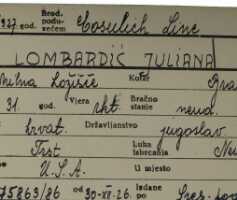 1927. god. Brod. poduzećem Cosulich Line
LOMBARDIĆ JULIANA
Milna Ložišće Kotar Bra
31. god. Vjera rkt. Bračno stanje neud.
hrvat. Državljanstvo jugoslav.
Trst Luka iskrcanja
U.S.A. U mjesto
75863/26 od 30-XII-26. Izdane po